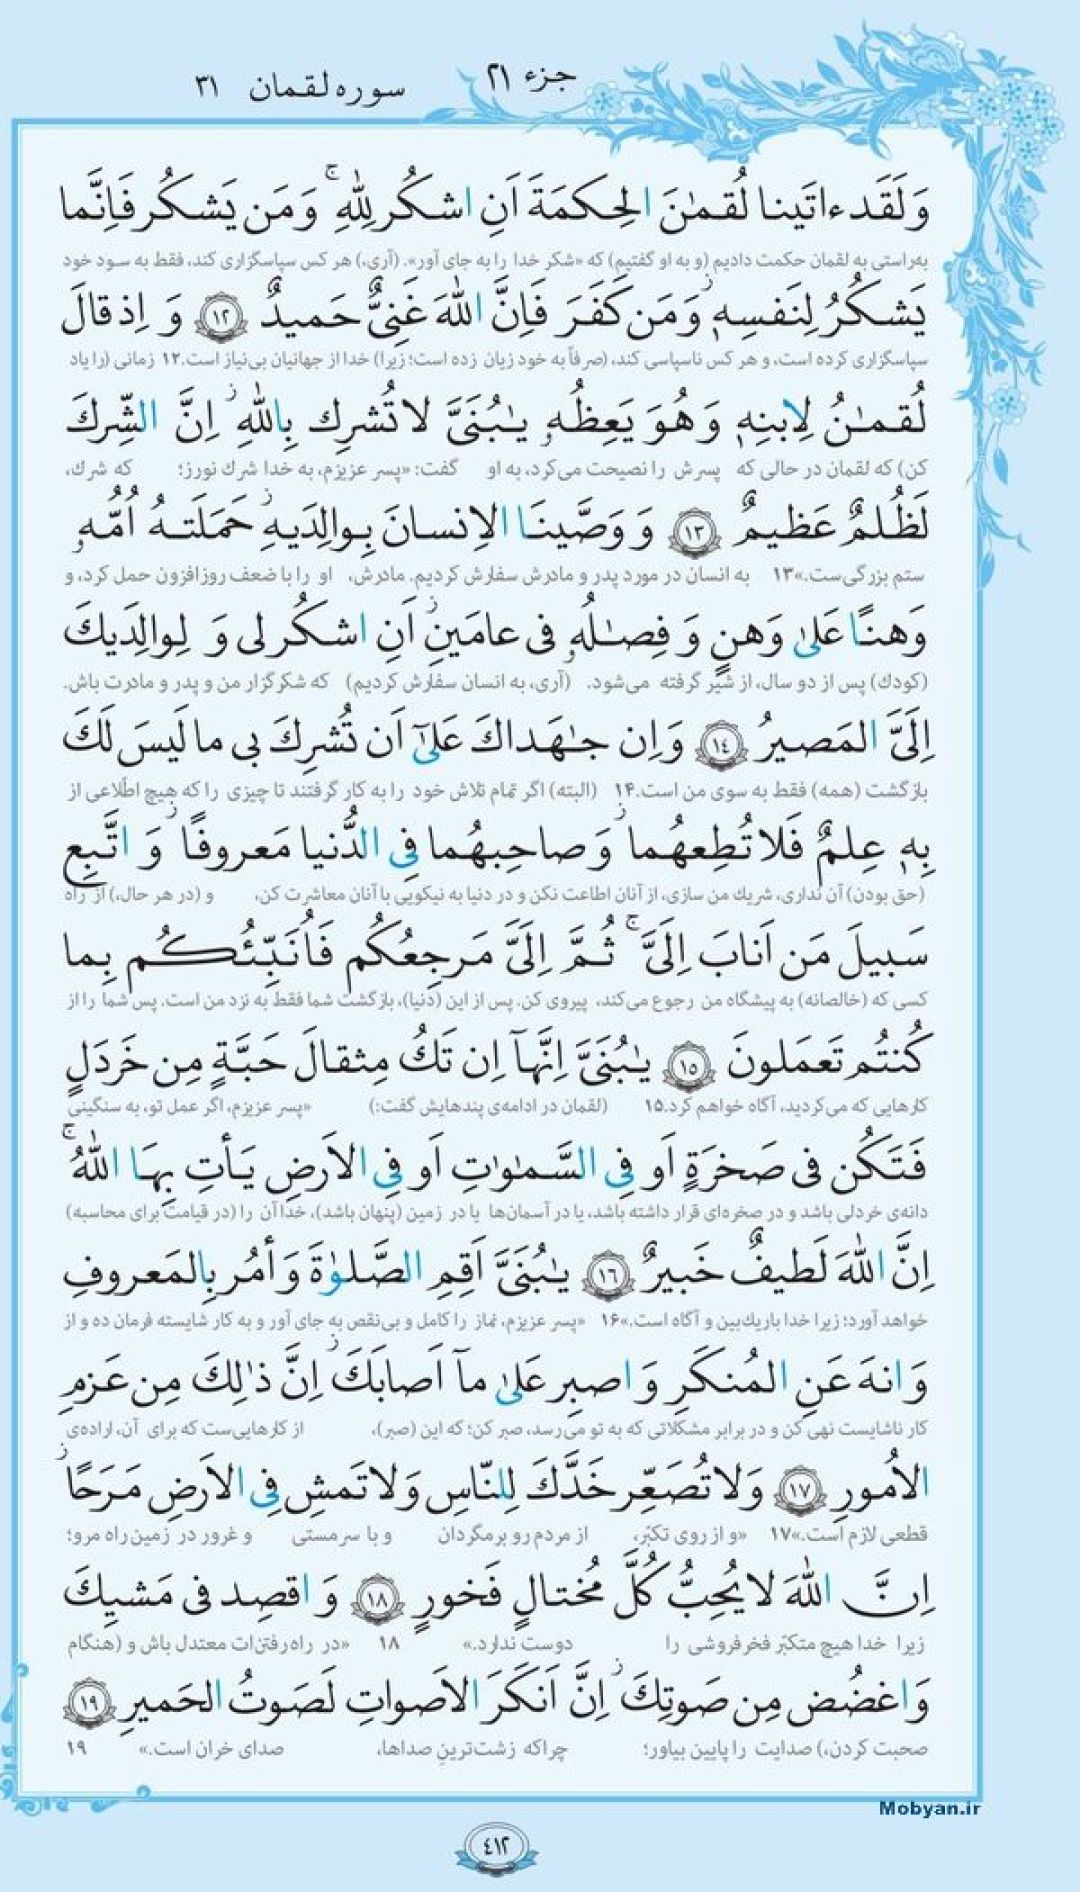 جزء ۲۱
سوره لقمان ۳۱
وَلَقَد ءاتَینا لُقمـٰنَ الحِکمَةَ اَنِ اشکُر لِلّٰهِ ۚ وَمَن یَشکُر فَاِنَّما
به‌راستی به لقمان حکمت دادیم (و به او گفتیم) که «شکر خدا را به جای آور». (آری،) هر کس سپاسگزاری کند، فقط به سود خود
یَشکُرُ لِنَفسِهٖ ۖ وَمَن کَفَرَ فَاِنَّ اللّٰهَ غَنِیٌّ حَمیدٌ ﴿۱۲﴾ وَ اِذ قالَ
سپاسگزاری کرده است، و هر کس ناسپاسی کند، (صرفاً به خود زیان زده است؛ زیرا) خدا از جهانیان بی‌نیاز است.۱۲ زمانی (را یاد
لُقمـٰنُ لِابنِهٖ وَهُوَ یَعِظُهٗ یـٰبُنَیَّ لاتُشرِك بِاللّٰهِ ۖ اِنَّ الشِّركَ
کن) که لقمان در حالی که پسرش را نصیحت می‌کرد، به او گفت: «پسر عزیزم، به خدا شرك نورز؛ که شرك،
لَظُلمٌ عَظیمٌ ﴿۱۳﴾ وَ وَصَّینَا الاِنسانَ بِوالِدَیهِ ۖ حَمَلَتهُ اُمُّهٗ
ستم بزرگی‌ست.»۱۳ به انسان در مورد پدر و مادرش سفارش کردیم. مادرش، او را با ضعف روزافزون حمل کرد، و
وَهنًا عَلیٰ وَهنٍ وَ فِصـٰلُهٗ فی عامَینِ ۖ اَنِ اشکُر لی وَ لِوالِدَیكَ
(کودك) پس از دو سال، از شیر گرفته می‌شود. (آری، به انسان سفارش کردیم) که شکرگزار من و پدر و مادرت باش.
اِلَیَّ المَصیرُ ﴿۱۴﴾ وَاِن جـٰهَداكَ عَلیٰٓ اَن تُشرِكَ بی ما لَیسَ لَكَ
بازگشت (همه) فقط به سوی من است.۱۴ (البته) اگر تمام تلاش خود را به کار گرفتند تا چیزی را که هیچ اطّلاعی از
بِهٖ عِلمٌ فَلاتُطِعهُما ۖ وَ صاحِبهُما فِی الدُّنیا مَعروفًا ۖ وَ اتَّبِع
(حق بودن) آن نداری، شریك من سازی، از آنان اطاعت نکن و در دنیا به نیکویی با آنان معاشرت کن، و (در هر حال،) از راه
سَبیلَ مَن اَنابَ اِلَیَّ ۚ ثُمَّ اِلَیَّ مَرجِعُکُم فَاُنَبِّئُکُم بِما
کسی که (خالصانه) به پیشگاه من رجوع می‌کند، پیروی کن. پس از این (دنیا)، بازگشت شما فقط به نزد من است. پس شما را از
کُنتُم تَعمَلونَ ﴿۱۵﴾ یـٰبُنَیَّ اِنَّهآ اِن تَكُ مِثقالَ حَبَّةٍ مِن خَردَلٍ
کارهایی که می‌کردید، آگاه خواهم کرد.۱۵ (لقمان در ادامه‌ی پندهایش گفت:) «پسر عزیزم، اگر عمل تو، به سنگینی
فَتَکُن فی صَخرَةٍ اَو فِی السَّمـٰوٰتِ اَو فِی الاَرضِ یَأتِ بِهَا اللّٰهُ ۚ
دانه‌ی خردلی باشد و در صخره‌ای قرار داشته باشد، یا در آسمان‌ها یا در زمین (پنهان باشد)، خدا آن را (در قیامت برای محاسبه)
اِنَّ اللّٰهَ لَطیفٌ خَبیرٌ ﴿۱۶﴾ یـٰبُنَیَّ اَقِمِ الصَّلوٰةَ وَأمُر بِالمَعروفِ
خواهد آورد؛ زیرا خدا باریك‌بین و آگاه است.»۱۶ «پسر عزیزم، نماز را کامل و بی‌نقص به جای آور و به کار شایسته فرمان ده و از
وَانهَ عَنِ المُنکَرِ وَاصبِر عَلیٰ مآ اَصابَكَ ۖ اِنَّ ذٰلِكَ مِن عَزمِ
کار ناشایست نهی کن و در برابر مشکلاتی که به تو می‌رسد، صبر کن؛ که این (صبر)، از کارهایی‌ست که برای آن، اراده‌ی
الاُمورِ ﴿۱۷﴾ وَلاتُصَعِّر خَدَّكَ لِلنّاسِ وَلاتَمشِ فِی الاَرضِ مَرَحًا ۖ
قطعی لازم است.»۱۷ «و از روی تکبّر، از مردم رو برمگردان و با سرمستی و غرور در زمین راه مرو؛
اِنَّ اللّٰهَ لایُحِبُّ کُلَّ مُختالٍ فَخورٍ ﴿۱۸﴾ وَ اقصِد فی مَشیِكَ
زیرا خدا هیچ متکبّر فخرفروشی را دوست ندارد.» ۱۸ «در راه رفتن‌ات معتدل باش و (هنگام
وَاغضُض مِن صَوتِكَ ۖ اِنَّ اَنکَرَ الاَصواتِ لَصَوتُ الحَمیرِ ﴿۱۹﴾
صحبت کردن،) صدایت را پایین بیاور؛ چراکه زشت‌ترین صداها، صدای خران است.» ۱۹
Mobyan.ir
٤١٢